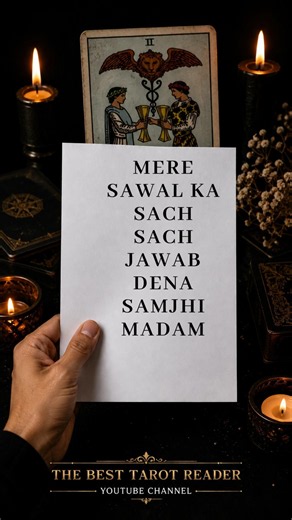 II
MERE
SAWAL KA
SACH
SACH
JAWAB
DENA
SAMJHI
MADAM
THE BEST TAROT READER
YOUTUBE CHANNEL